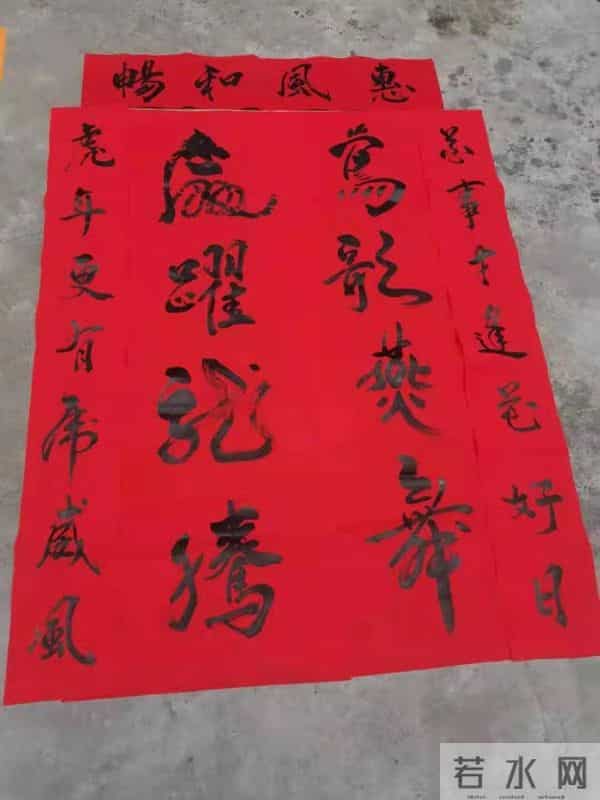 惠風和暢
喜事才逢花好日
鶯歌燕舞
躍龍騰
虎年更有虎威風
若水网